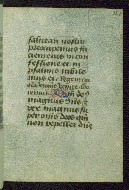 salutari nostro
preoccupemus fa
ciem eius in con
fessione et in
psalmis iubile
mus ei. Regem cu
Quoniam deus
magnus dns et
rex magnus su
per omnes deos qm
non repellet dns